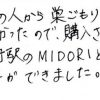 の人から巣ごもり
かったので、購入さ
野駅のMIDORIと
ができましたの